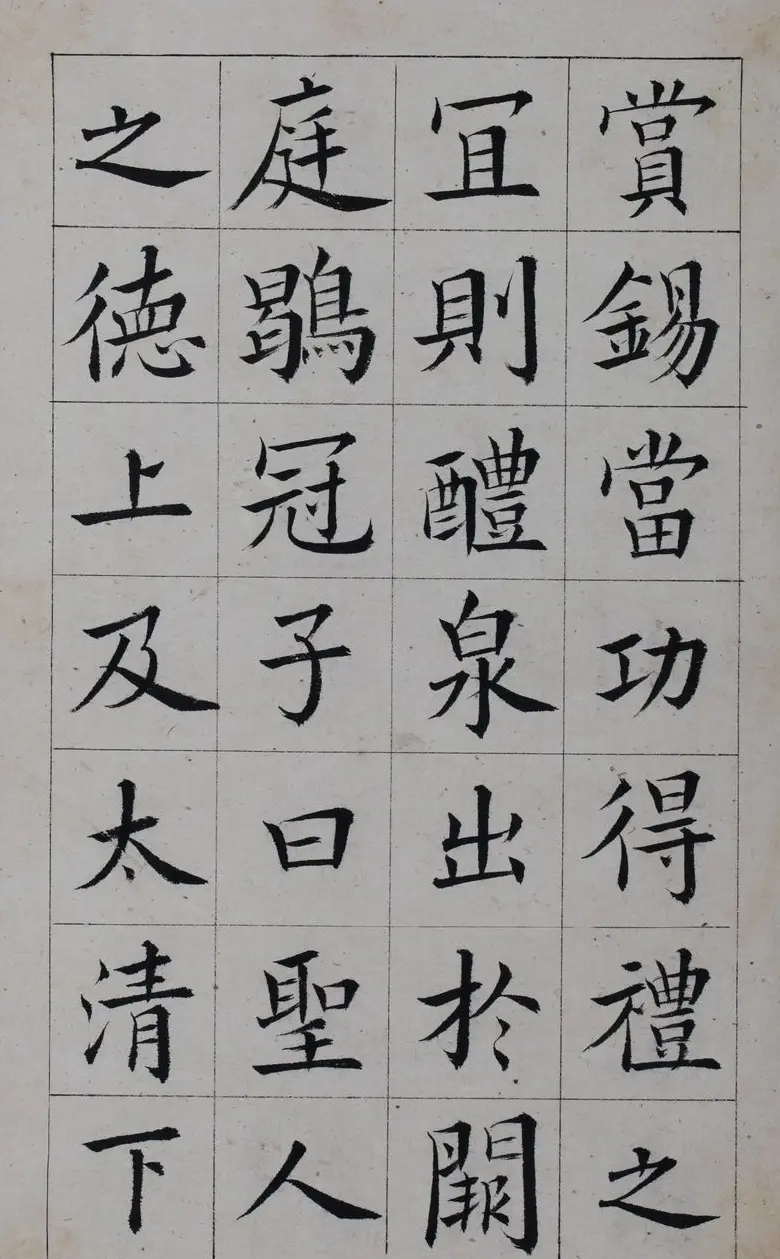 賞錫當功得禮之
冝則醴泉出於闕
庭鶡冠子曰聖人
之徳上及太清下